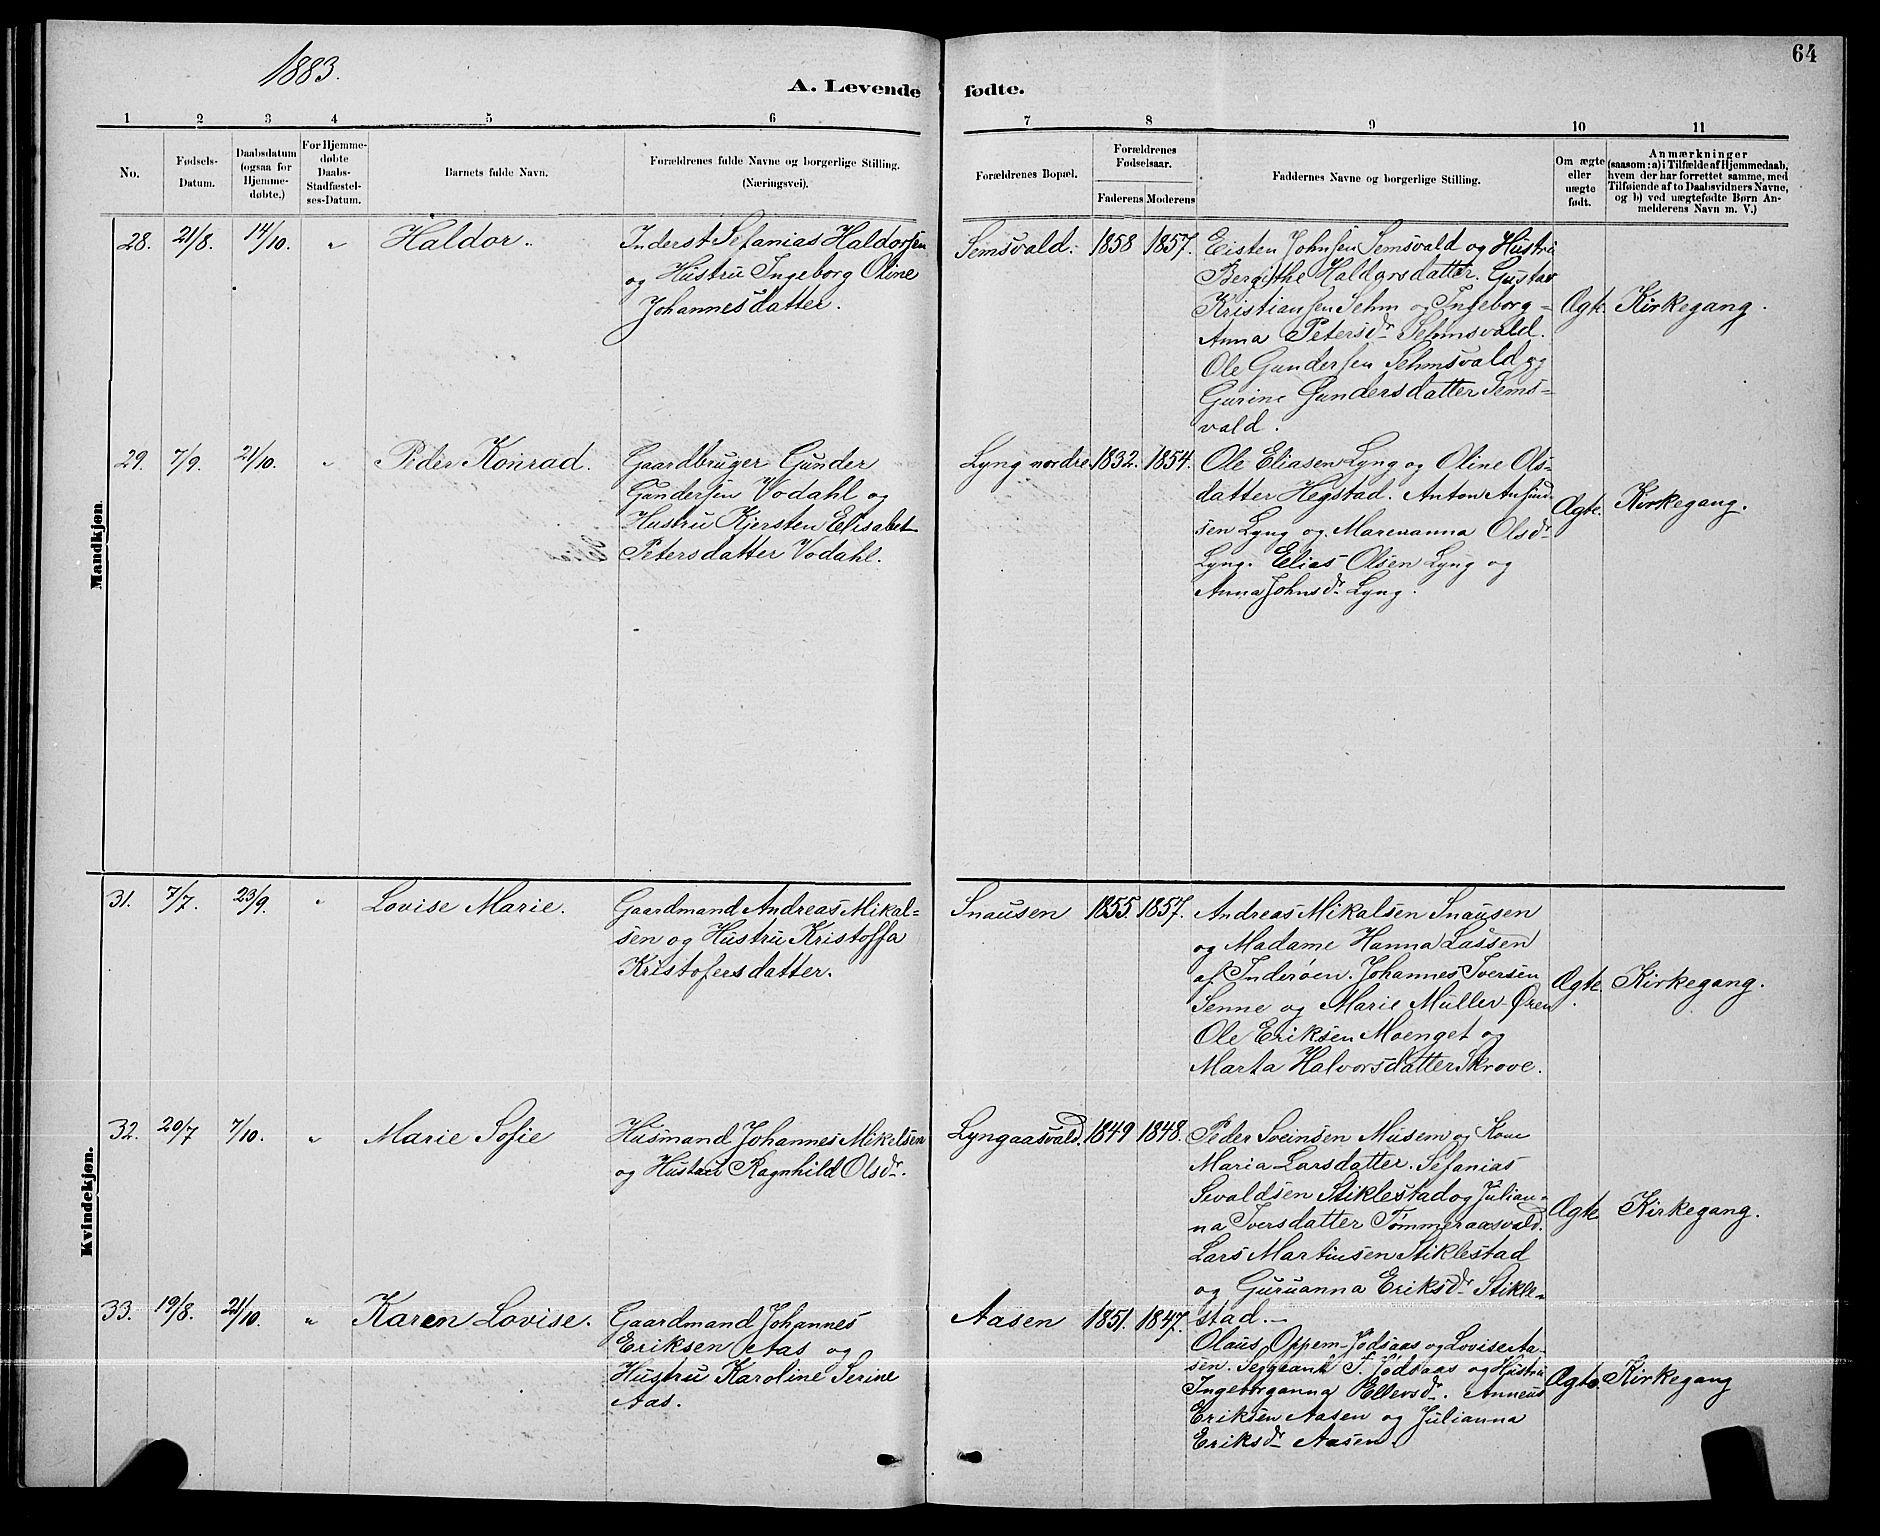 1883.
64
A. Levende fødte.
1 2 3 4 5 6 7 8 9 10 11
No.
Fødsels-
Datum.
Daabsdatum
(ogsaa for
Hjemme-
døbte.)
For Hjemme-
døbte
Daabs-
Stadfæstel-
ses-Datum.
Barnets fulde Navn.
Forældrenes fulde Navne og borgerlige Stilling.
(Næringsvei).
Forældrenes Bopæl.
Forældrenes
Fødselsaar.
Faderens Moderens
Faddernes Navne og borgerlige Stilling.
Om ægte
eller
uægte
født.
Anmærkninger
(saasom: a) i Tilfælde af Hjemmedaab,
hvem der har forrettet samme, med
Tilføiende af to Daabsvidners Navne,
og b) ved uægtefødte Børn An-
melderens Navn m. V.)
Mandkjøn.
28. 21/8. 14/10. " Haldor.
Inderst Sefanias Haldorsen
og Hustru Ingeborg Oline
Johannesdatter.
Semsvald. 1858 1857.
Eisten Johnsen Semsvald og Hustru
Bergithe Haldorsdatter. Gustav
Kristiansen Sehm og Ingeborg-
Anna Petersdr Sehmsvald.
Ole Gundersen Sehmsvald og
Gurine Gundersdatter Sems-
vald.
Ægte. Kirkegang.
29. 7/9. 21/10. " Peder Konrad.
Gaardbruger Gunder
Gundersen Vodahl og
Hustru Kjersten Elisabet
Petersdatter Vodahl.
Lyng nordre 1832. 1854.
Ole Eliasen Lyng og Oline Ols-
datter Hegstad. Anton Anfin-
sen Lyng og Marenanna Olsdr
Lyng. Elias Olsen Lyng og
Anna Johnsdr Lyng.
Ægte. Kirkegang.
Kvindekjøn.
31. 7/7. 23/9. " Lovise Marie.
Gaardmand Andreas Mikal-
sen og Hustru Kristoffa
Kristofersdatter.
Snausen 1855. 1857.
Andreas Mikalsen Snausen
og Madame Hanna Lassen
af Inderøen. Johannes Iversen
Senne og Marie Müller Øren
Ole Eriksen Moenget og
Marta Halvorsdatter Skrove.
Ægte. Kirkegang.
32. 20/7 7/10. " Marie Sofie
Husmand Johannes Mikelsen
og Hustru Ragnhild Olsdr.
Lyngaasvald. 1849 1848.
Peder Sveinsen Musem og Kone
Maria Larsdatter. Sefanias
Sivaldsen Stiklestad og Julian-
na Iversdatter Tømmeraasvald.
Lars Martinsen Stiklestad
og Guruanna Eriksdr Stikle-
stad.-
Ægte Kirkegang.
33. 19/8. 21/10. " Karen Lovise.
Gaardmand Johannes
Eriksen Aas og
Hustru Karoline Serine
Aas.
Aasen 1851. 1847.
Olaus Oppem-Jødsaas og Lovise Aa-
sen. Jødsaas og Hustru
Ingeborganna Ellevsdr. Anneus
Eriksen Aasen og Julianna
Eriksdr Aasen.
Ægte. Kirkegang